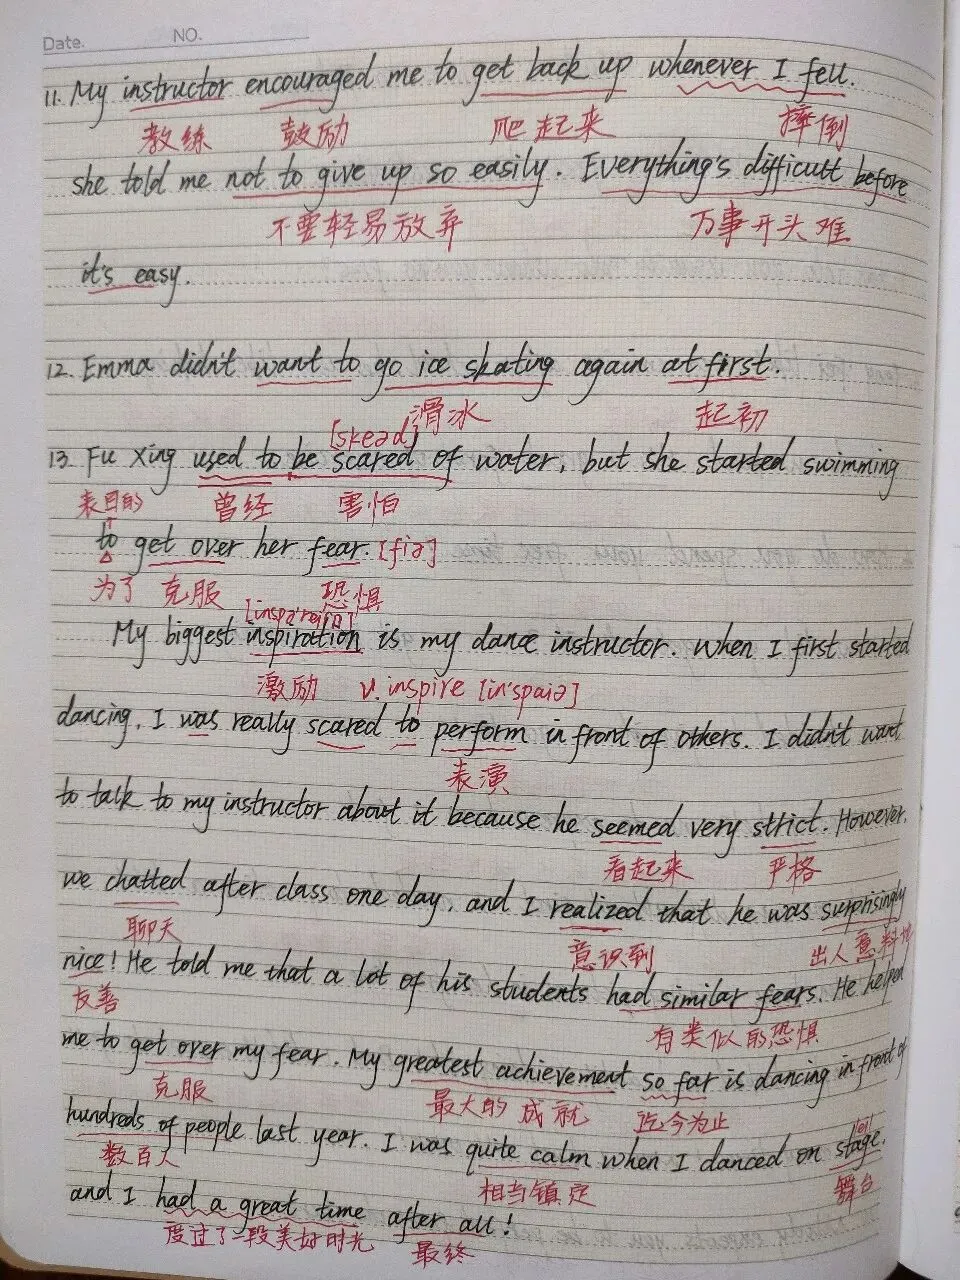 Date. NO.
11. My instructor encouraged me to get back up whenever I fell.
教练 鼓励 爬起来 摔倒
she told me not to give up so easily. Everything's difficult before
不要轻易放弃 万事开头难
it's easy.
12. Emma didn't want to go ice skating again at first.
滑冰 起初
[skeəd]
13. Fu Xing used to be scared of water, but she started swimming
表目的 曾经 害怕
to get over her fear. [fiə]
为了 克服 恐惧
[inspə'reiʃn]
My biggest inspiration is my dance instructor. When I first started
激励 v. inspire [in'spaiə]
dancing, I was really scared to perform in front of others. I didn't want
表演
to talk to my instructor about it because he seemed very strict. However,
看起来 严格
we chatted after class one day, and I realized that he was surprisingly
聊天 意识到 出人意料地
nice! He told me that a lot of his students had similar fears. He helped
友善 有类似的恐惧
me to get over my fear. My greatest achievement so far is dancing in front of
克服 最大的成就 迄今为止
hundreds of people last year. I was quite calm when I danced on stage,
数百人 相当镇定 舞台
and I had a great time after all!
度过了一段美好时光 最终